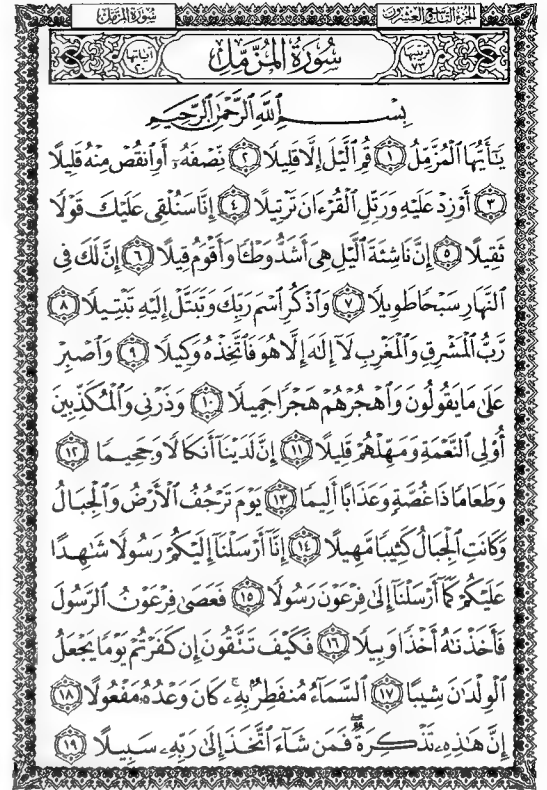 سُورَةُ المُزَّمِّل الجُزْءُ التَّاسِعُ وَالعِشْرُونَ
ترتيبها ٧٣ سُورَةُ المُزَّمِّل آياتها ٢٠
بِسْمِ ٱللَّهِ ٱلرَّحْمَٰنِ ٱلرَّحِيمِ
يَٰٓأَيُّهَا ٱلْمُزَّمِّلُ ١ قُمِ ٱلَّيْلَ إِلَّا قَلِيلًا ٢ نِّصْفَهُۥٓ أَوِ ٱنقُصْ مِنْهُ قَلِيلًا
٣ أَوْ زِدْ عَلَيْهِ وَرَتِّلِ ٱلْقُرْءَانَ تَرْتِيلًا ٤ إِنَّا سَنُلْقِى عَلَيْكَ قَوْلًا
ثَقِيلًا ٥ إِنَّ نَاشِئَةَ ٱلَّيْلِ هِىَ أَشَدُّ وَطْـًٔا وَأَقْوَمُ قِيلًا ٦ إِنَّ لَكَ فِى
ٱلنَّهَارِ سَبْحًا طَوِيلًا ٧ وَٱذْكُرِ ٱسْمَ رَبِّكَ وَتَبَتَّلْ إِلَيْهِ تَبْتِيلًا ٨
رَّبُّ ٱلْمَشْرِقِ وَٱلْمَغْرِبِ لَآ إِلَٰهَ إِلَّا هُوَ فَٱتَّخِذْهُ وَكِيلًا ٩ وَٱصْبِرْ
عَلَىٰ مَا يَقُولُونَ وَٱهْجُرْهُمْ هَجْرًا جَمِيلًا ١٠ وَذَرْنِى وَٱلْمُكَذِّبِينَ
أُو۟لِى ٱلنَّعْمَةِ وَمَهِّلْهُمْ قَلِيلًا ١١ إِنَّ لَدَيْنَآ أَنكَالًا وَجَحِيمًا ١٢
وَطَعَامًا ذَا غُصَّةٍ وَعَذَابًا أَلِيمًا ١٣ يَوْمَ تَرْجُفُ ٱلْأَرْضُ وَٱلْجِبَالُ
وَكَانَتِ ٱلْجِبَالُ كَثِيبًا مَّهِيلًا ١٤ إِنَّآ أَرْسَلْنَآ إِلَيْكُمْ رَسُولًا شَٰهِدًا
عَلَيْكُمْ كَمَآ أَرْسَلْنَآ إِلَىٰ فِرْعَوْنَ رَسُولًا ١٥ فَعَصَىٰ فِرْعَوْنُ ٱلرَّسُولَ
فَأَخَذْنَٰهُ أَخْذًا وَبِيلًا ١٦ فَكَيْفَ تَتَّقُونَ إِن كَفَرْتُمْ يَوْمًا يَجْعَلُ
ٱلْوِلْدَٰنَ شِيبًا ١٧ ٱلسَّمَآءُ مُنفَطِرٌۢ بِهِۦ ۚ كَانَ وَعْدُهُۥ مَفْعُولًا ١٨
إِنَّ هَٰذِهِۦ تَذْكِرَةٌ ۖ فَمَن شَآءَ ٱتَّخَذَ إِلَىٰ رَبِّهِۦ سَبِيلًا ١٩